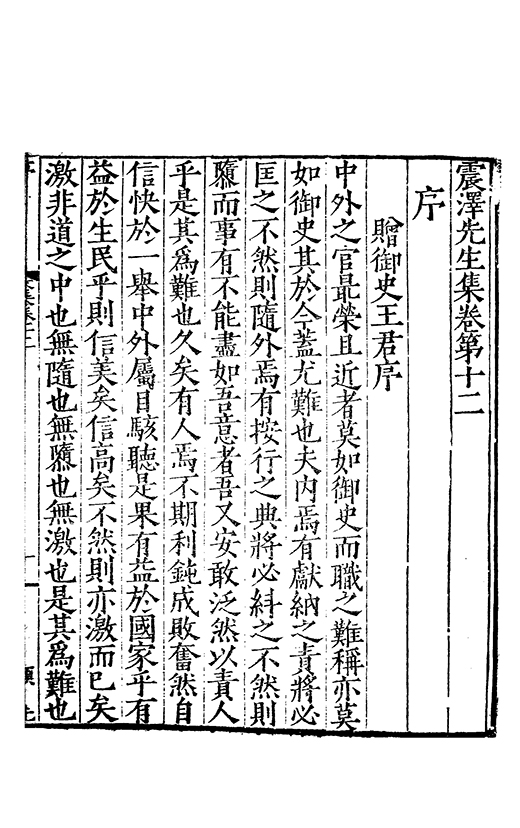 震澤先生集卷第十二
序
贈御史王君序
中外之官最榮且近者莫如御史而職之難稱亦莫
如御史其於今蓋尤難也夫內焉有獻納之責將必
匡之不然則隨外焉有按行之典將必糾之不然則
隳而事有不能盡如吾意者吾又安敢泛然以責人
乎是其為難也久矣有人焉不期利鈍成敗奮然自
信快於一舉中外屬目駭聽是果有益於國家乎有
益於生民乎則信美矣信高矣不然則亦激而已矣
激非道之中也無隨也無隳也無激也是其為難也